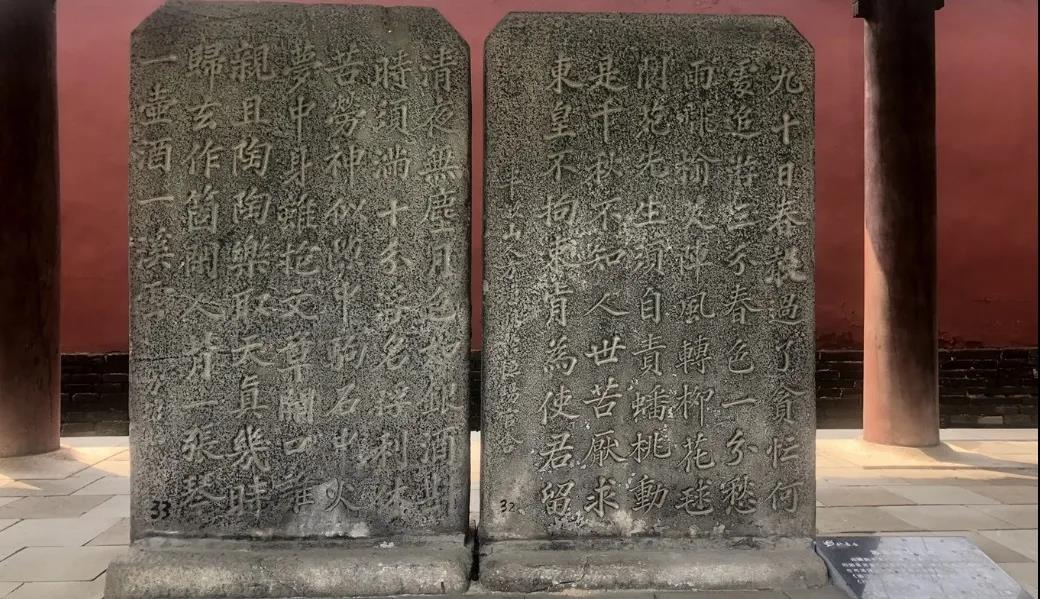 九十日春都過了貪忙何
處追游三分春色一分愁
雨翻榆莢陣風轉柳花毬
閬苑先生須自責蟠桃動
是千秋不知人世苦厭求
東皇不拘束肯為使君留
32
清夜無塵月色如銀酒斟
時須滿十分浮名浮利休
苦勞神似隙中駒石中火
夢中身雖抱文章開口誰
親且陶陶樂取天真幾時
歸去作箇閑人背一張琴
一壺酒一溪雲
33